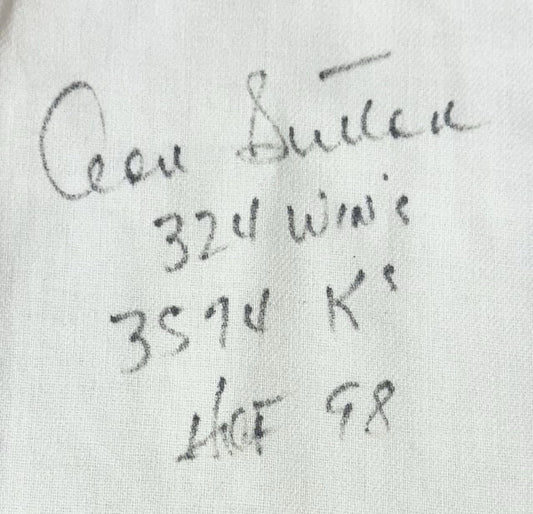 Don Sutton
324 WIN's
3574 K's
HOF 98